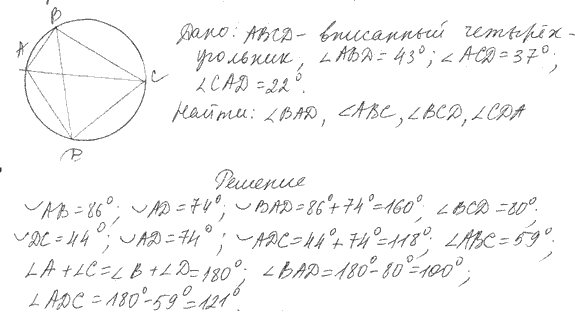 B
A
C
D
Дано: ABCD - вписанный четырёх-
угольник, ∠ABD = 43°; ∠ACD = 37°;
∠CAD = 22°.
Найти: ∠BAD, ∠ABC, ∠BCD, ∠CDA
Решение
◡AB = 86°; ◡AD = 74°; ◡BAD = 86° + 74° = 160°; ∠BCD = 80°;
◡DC = 44°; ◡AD = 74°; ◡ADC = 44° + 74° = 118°; ∠ABC = 59°;
∠A + ∠C = ∠B + ∠D = 180°; ∠BAD = 180° - 80° = 100°;
∠ADC = 180° - 59° = 121°.